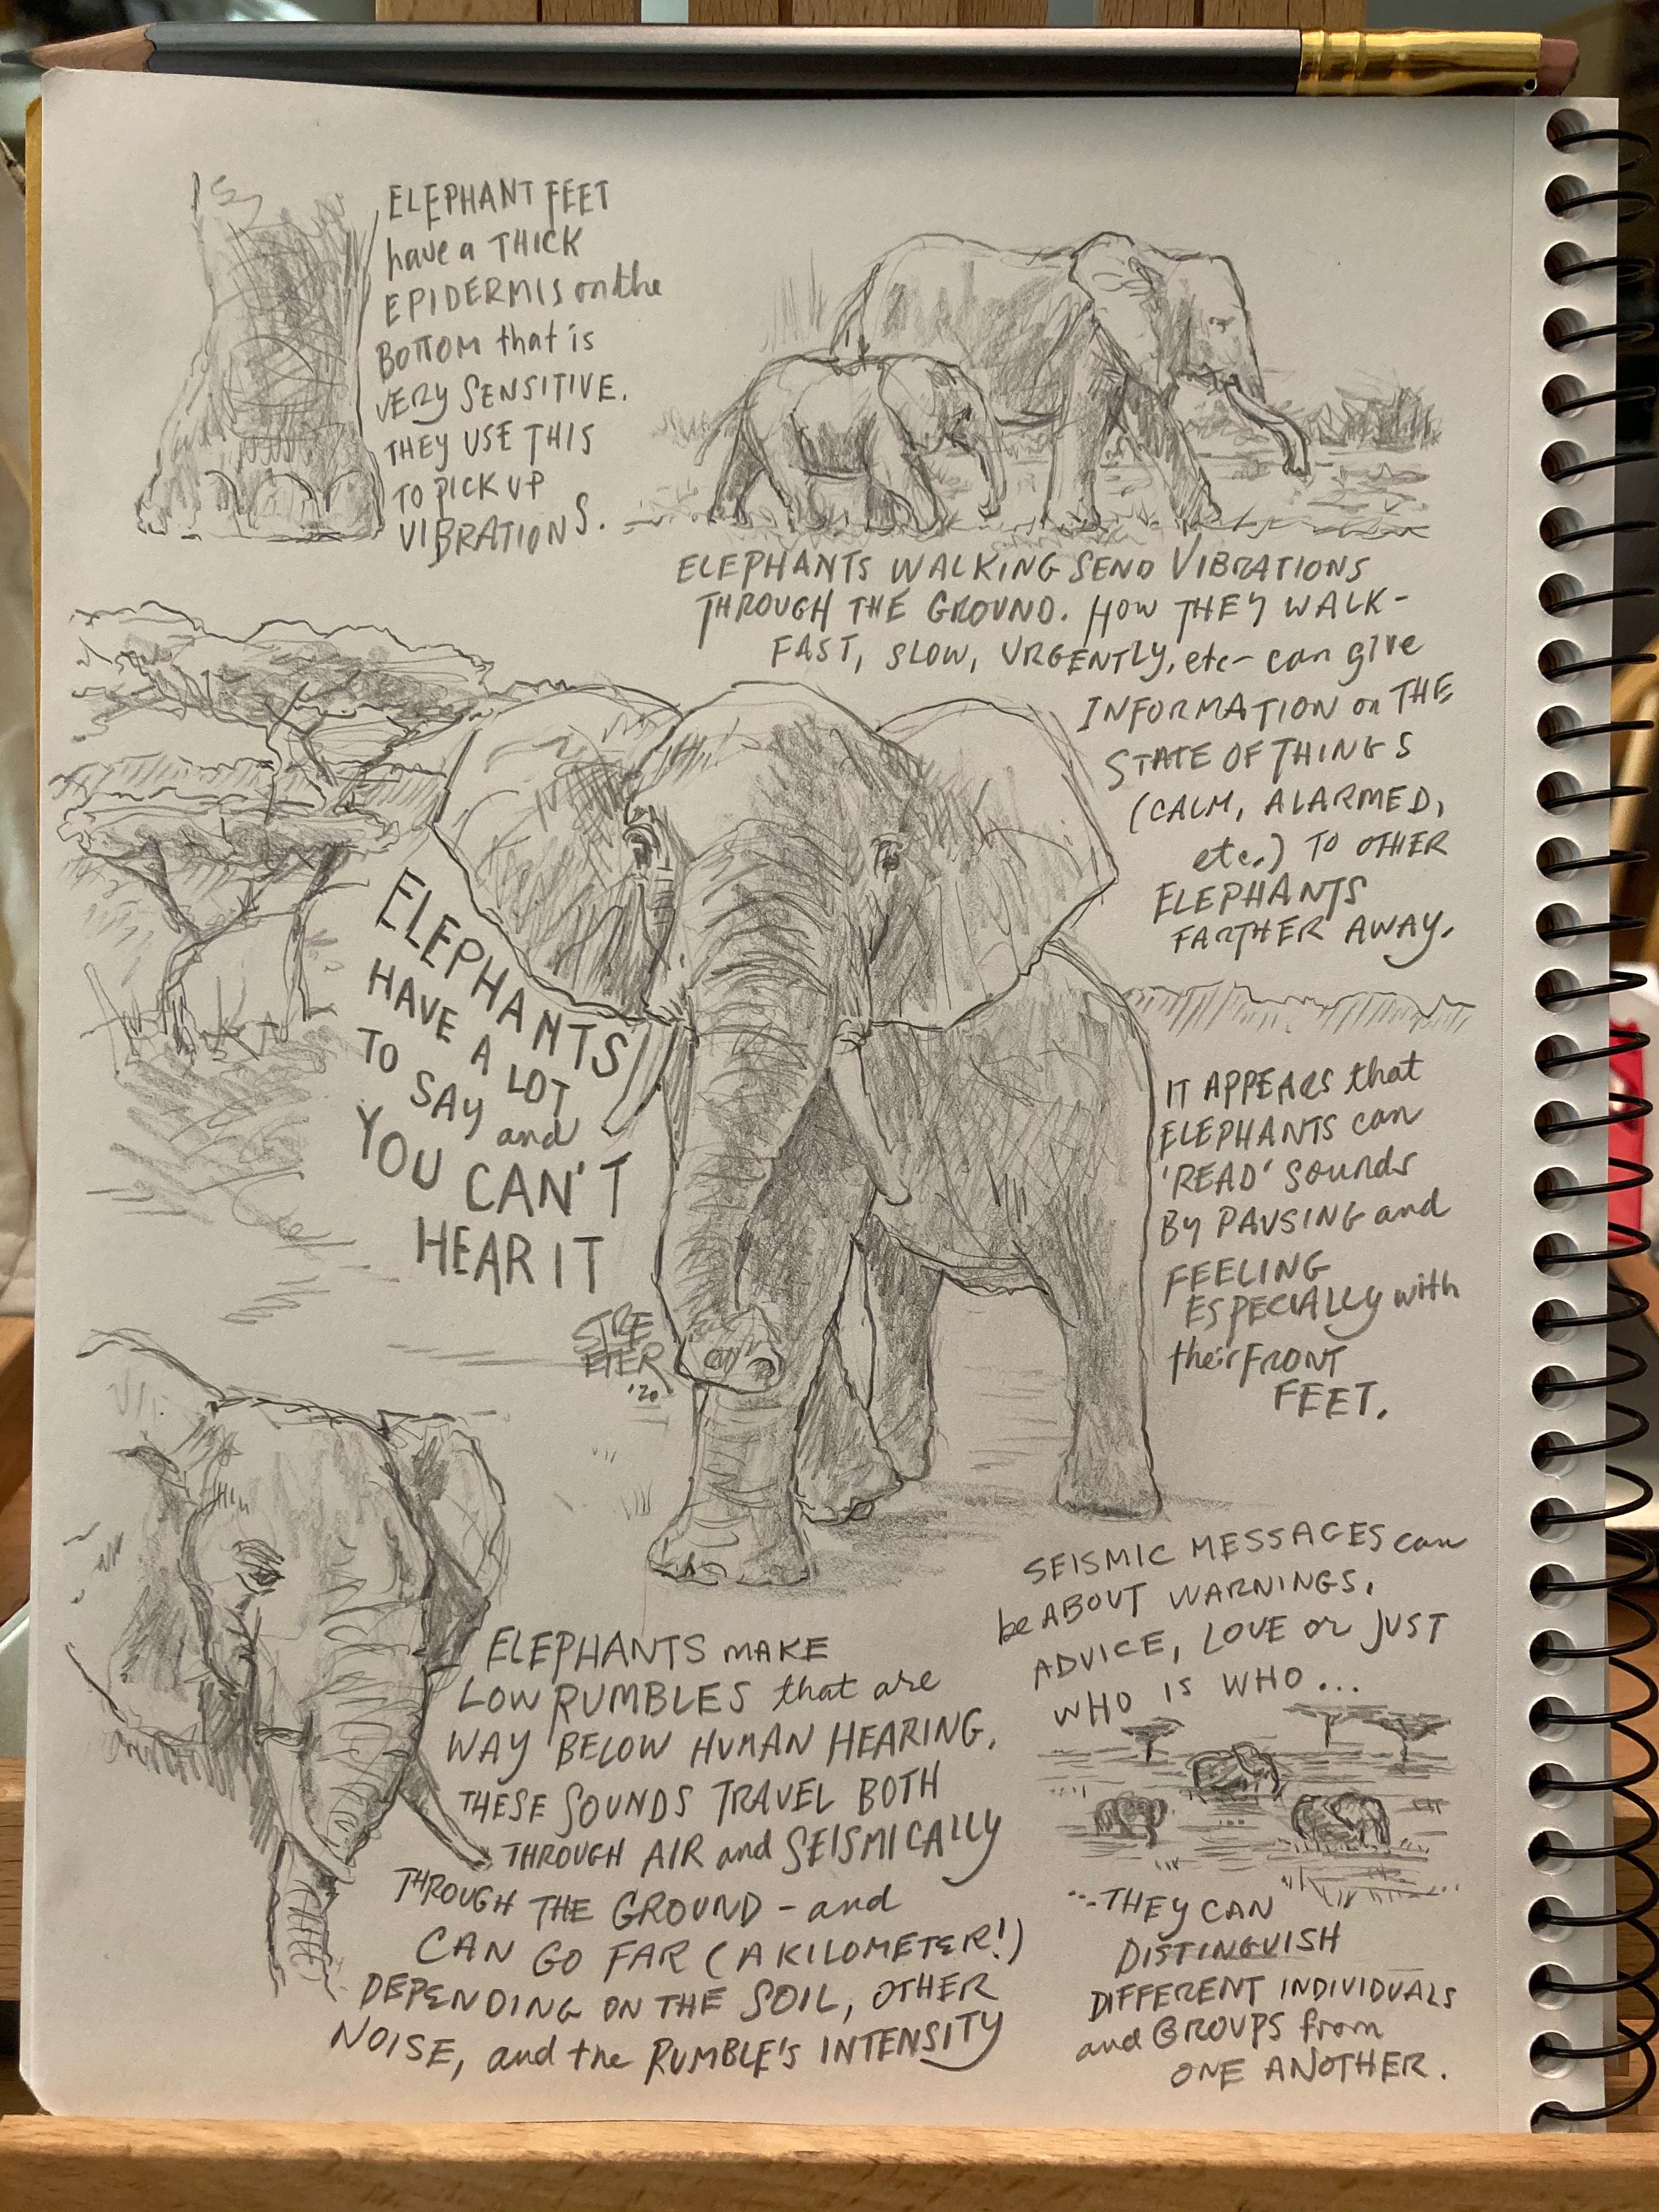 ELEPHANT FEET
have a THICK
EPIDERMIS on the
BOTTOM that is
VERY SENSITIVE.
THEY USE THIS
TO PICK UP
VIBRATIONS.
ELEPHANTS WALKING SEND VIBRATIONS
THROUGH THE GROUND. HOW THEY WALK-
FAST, SLOW, URGENTLY, etc- can give
INFORMATION on THE
STATE OF THINGS
(CALM, ALARMED,
etc.) TO OTHER
ELEPHANTS
FARTHER AWAY.
ELEPHANTS
HAVE A LOT
TO SAY and
YOU CAN'T
HEAR IT
STRE
ETER
'20
IT APPEARS that
ELEPHANTS can
'READ' Sounds
By PAUSING and
FEELING
ESPECIALLY with
their FRONT
FEET.
ELEPHANTS MAKE
LOW RUMBLES that are
WAY BELOW HUMAN HEARING.
THESE SOUNDS TRAVEL BOTH
THROUGH AIR and SEISMICALLY
THROUGH THE GROUND - and
CAN GO FAR (A KILOMETER!)
DEPENDING ON THE SOIL, OTHER
NOISE, and the RUMBLE'S INTENSITY
SEISMIC MESSAGES can
be ABOUT WARNINGS,
ADVICE, LOVE or JUST
WHO IS WHO...
...THEY CAN
DISTINGUISH
DIFFERENT INDIVIDUALS
and GROUPS from
ONE ANOTHER.